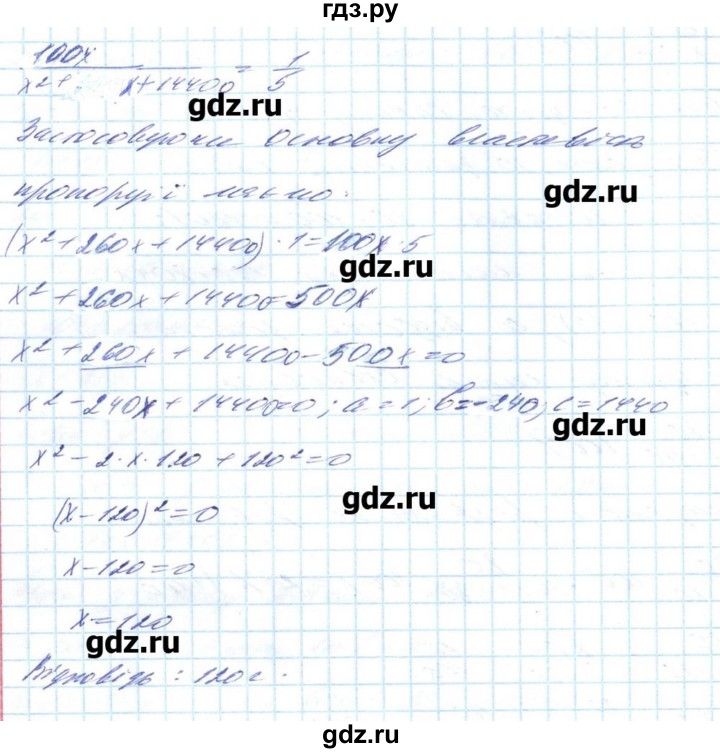 гдз.ру
100x / x² + x + 14400 = 1/5
gdz.ru
Застосовуючи основну властивість
пропорції маємо:
gdz.ru
(x² + 260x + 14400) · 1 = 100x · 5
gdz.ru
x² + 260x + 14400 = 500x
x² + 260x + 14400 - 500x = 0
x² - 240x + 14400 = 0; a = 1; b = -240; c = 1440
gdz.ru
x² - 2 · x · 120 + 120² = 0
gdz.ru
(x - 120)² = 0
x - 120 = 0
x = 120
gdz.ru
Відповідь: 120 г.
gdz.ru